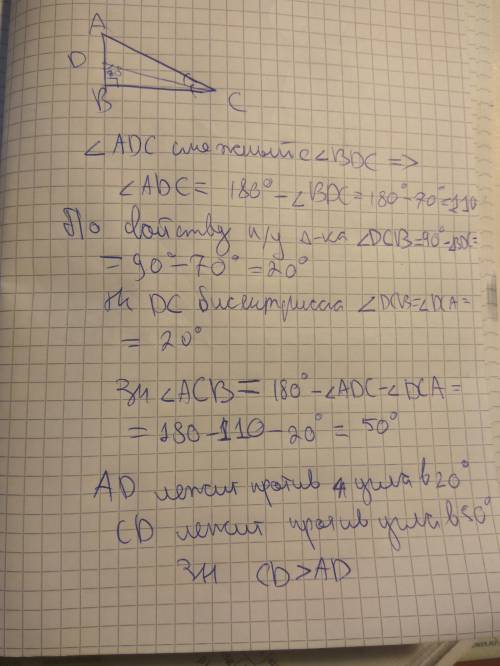 A
D
B
C
∠ADC смежный с ∠BDC =>
∠ADC = 180° - ∠BDC = 180° - 70° = 110
По свойству п/у Δ-ка ∠DCB = 90° - ∠BDC =
= 90° - 70° = 20°
Тк DC биссектрисса ∠DCB = ∠DCA =
= 20°
Зн ∠ACB = 180° - ∠ADC - ∠DCA =
= 180 - 110 - 20° = 50°
AD лежит против угла в 20°
CD лежит против угла в 50°
Зн CD > AD